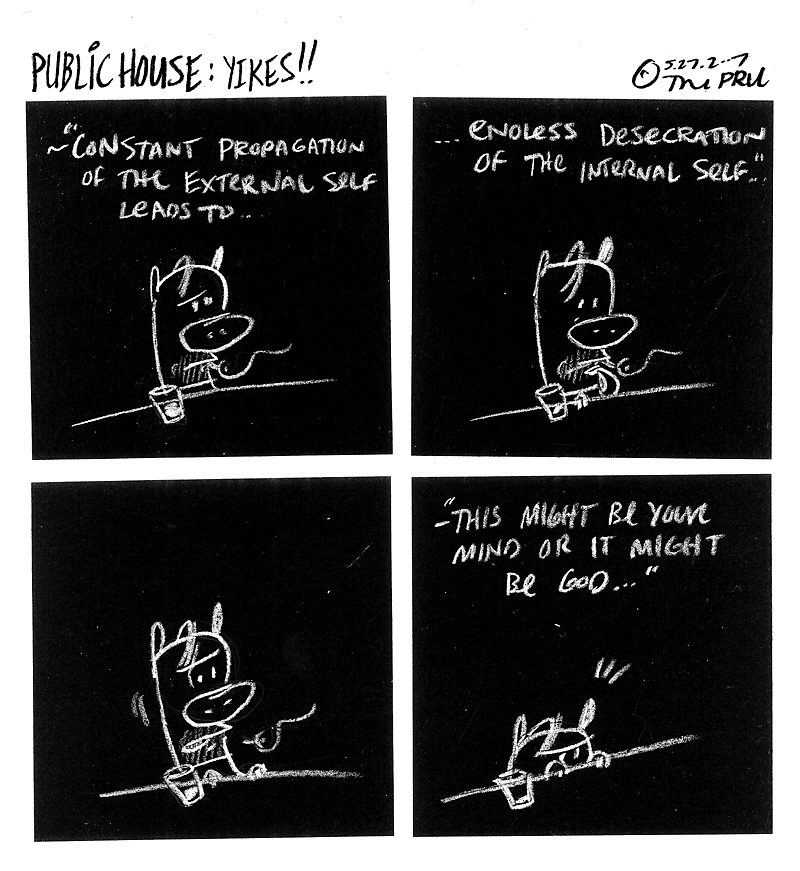 PUBLIC HOUSE: YIKES!!
© 5.27.2..7
THE PRU
~"CONSTANT PROPAGATION
OF THE EXTERNAL SELF
LEADS TO....
...ENDLESS DESECRATION
OF THE INTERNAL SELF.."
~"THIS MIGHT BE YOUR
MIND OR IT MIGHT
BE GOD..."